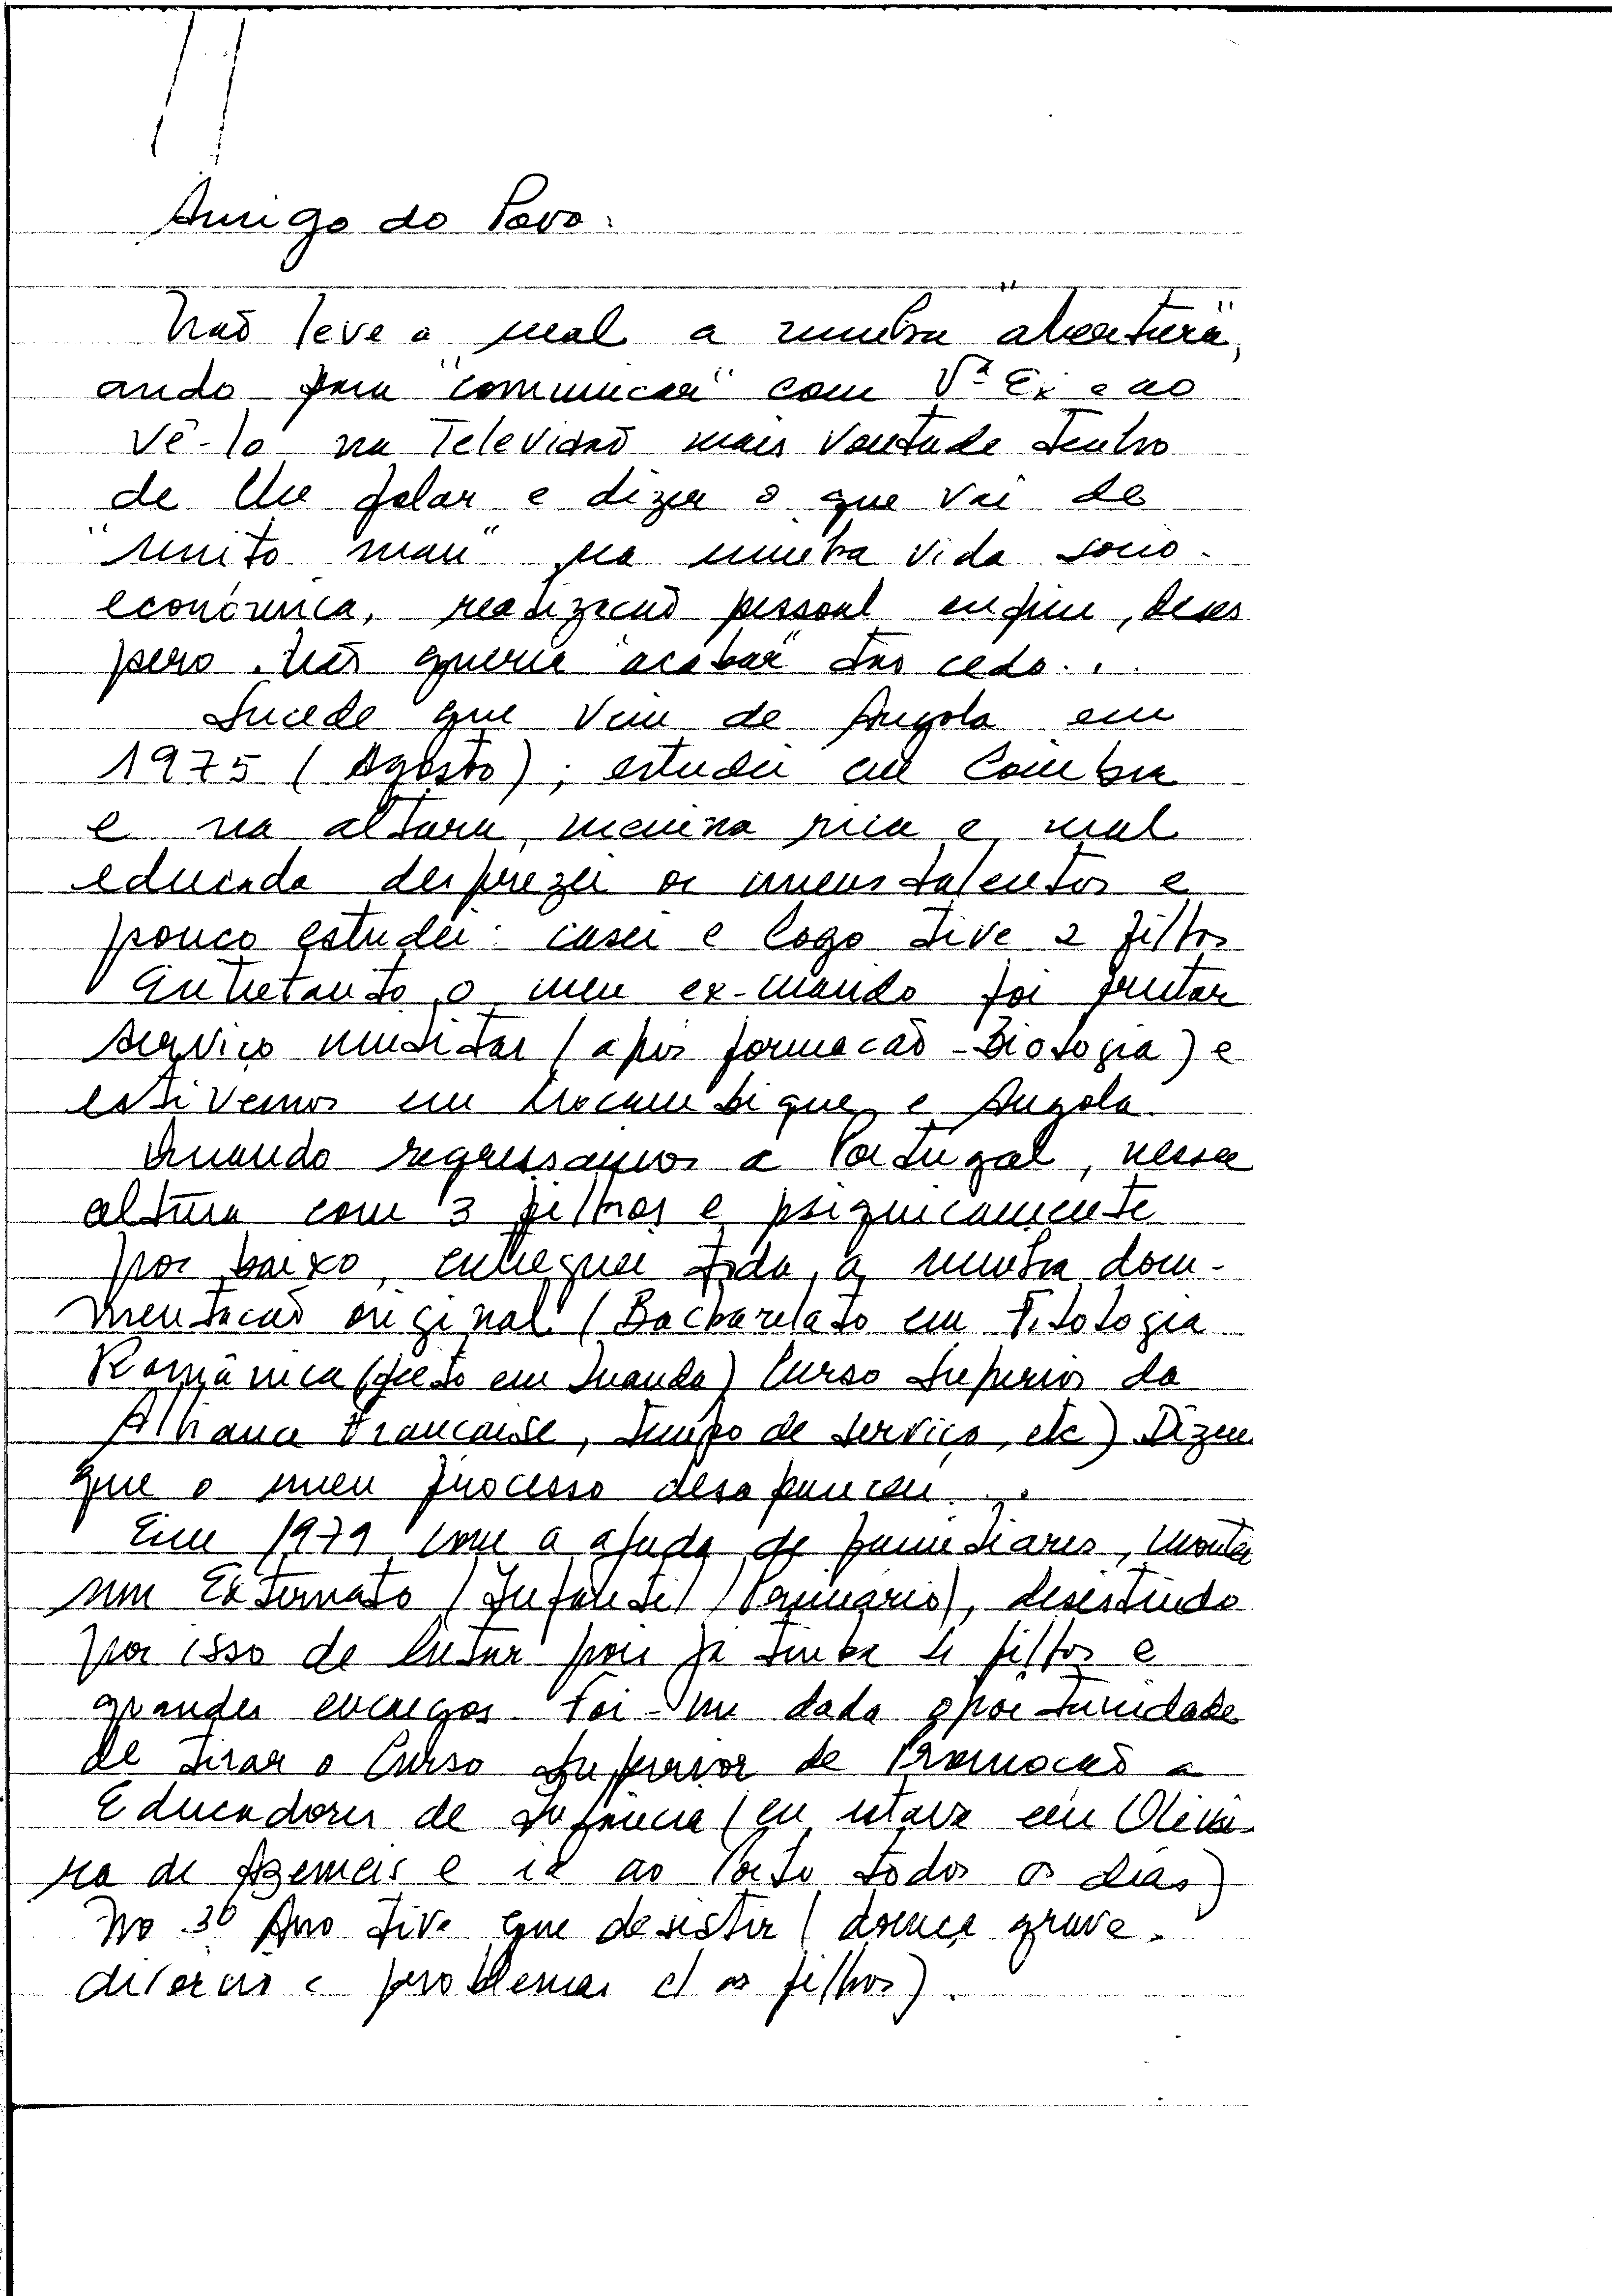 Amigo do Povo:
Não leve a mal a minha "abertura",
ando para "comunicar" com Vª Exª e ao
vê-lo na Televisão mais vontade tenho
de lhe falar e dizer o que vai de
"muito mau" na minha vida socio-
económica, realização pessoal enfim, deses
pero. Não queria "acabar" tão cedo...
Sucede que vim de Angola em
1975 (Agosto); estudei em Coimbra
e na altura, menina rica e mal
educada desprezei os meus talentos e
pouco estudei: casei e logo tive 2 filhos
Entretanto o meu ex-marido foi prestar
serviço militar (após formação - Biologia) e
estivemos em Moçambique e Angola.
Quando regressamos a Portugal, nessa
altura com 3 filhos e psiquicamente
por baixo, entreguei toda a minha docu-
mentação original (Bacharelato em Filologia
Românica (feito em Luanda) Curso Superior da
Alliance Francaise, tempo de serviço, etc) Dizem
que o meu processo desapareceu...
Em 1979 com a ajuda de familiares, montei
um Externato (Infantil/Primário), desistindo
por isso de lutar pois já tinha 4 filhos e
grandes encargos. Foi-me dada oportunidade
de tirar o Curso Superior de Promoção a
Educadores de Infância (eu estava em Olivei-
ra de Azemeis e ia ao Porto todos os dias)
No 3º Ano tive que desistir (doença grave.
divorcio e problemas c/ os filhos).